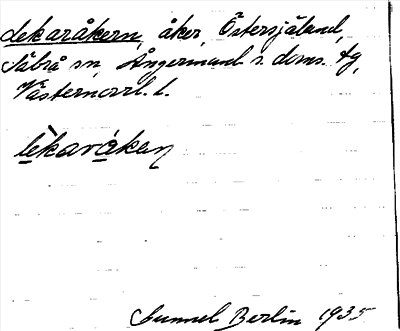 Lekaråkern, åker, Östersjäland,
Säbrå sn, Ångermanl. s. doms. tg,
Västernorrl. l.
lèkaråkeṇ
Gunnel Berlin 1935